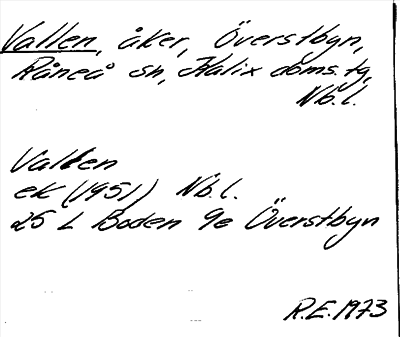 Vallen, åker, Överstbyn,
Råneå sn, Kalix doms. tg,
Nb. l.
Vallen
ek (1951) Nb. l.
25 L Boden 9e Överstbyn
R.E. 1973